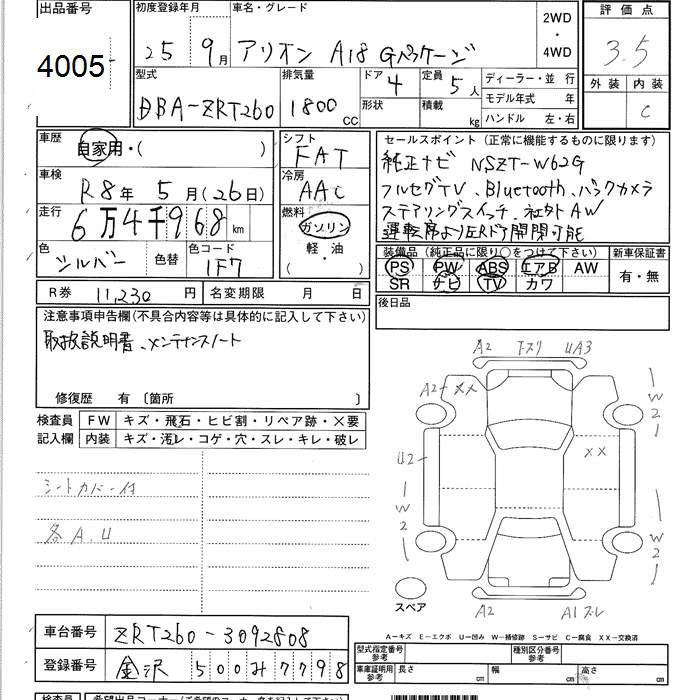 出品番号 初度登録年月 車名・グレード 2WD・4WD 評価点
4005 25 9月 アリオン A18 Gパッケージ 3.5
型式 排気量 ドア 4 定員 5人 ディーラー・並行 外装 内装
DBA-ZRT260 1800CC 形状 積載 kg モデル年式 年 C
ハンドル 左・右
車歴 自家用・( ) シフト FAT セールスポイント(正常に機能するものに限ります)
車検 R8年5月(26日) 冷房 AAC 純正ナビ NSZT-W62G
フルセグTV、Bluetooth、バックカメラ
走行 6万4千968km 燃料 ガソリン ステアリングスイッチ、社外AW
軽・油 ( ) 運転席より左Rドア開閉可能
色 シルバー 色替 色コード 1F7 装備品(純正品に限り○をつけて下さい) 新車保証書
PS PW ABS エアB AW 有・無
SR ナビ TV カワ
R券 11,230円 名変期限 月 日 後日品
注意事項申告欄(不具合内容等は具体的に記入して下さい)
取扱説明書、メンテナンスノート
修復歴 有 〔箇所 〕
検査員記入欄 FW キズ・飛石・ヒビ割・リペア跡・×要
内装 キズ・汚レ・コゲ・穴・スレ・キレ・破レ
シートカバー付
各A.U
A2 UA3
A2 XX
W2
U2 XX
W2 W2
A2 A1
スペア
A-キズ E-エクボ U-凹み W-補修跡 S-サビ C-腐食 XX-交換済
車台番号 ZRT260-3092808
登録番号 金沢 500み7798
型式指定番号 参考 種別区分番号 参考
車庫証明用 参考 長さ cm 幅 cm 高さ cm